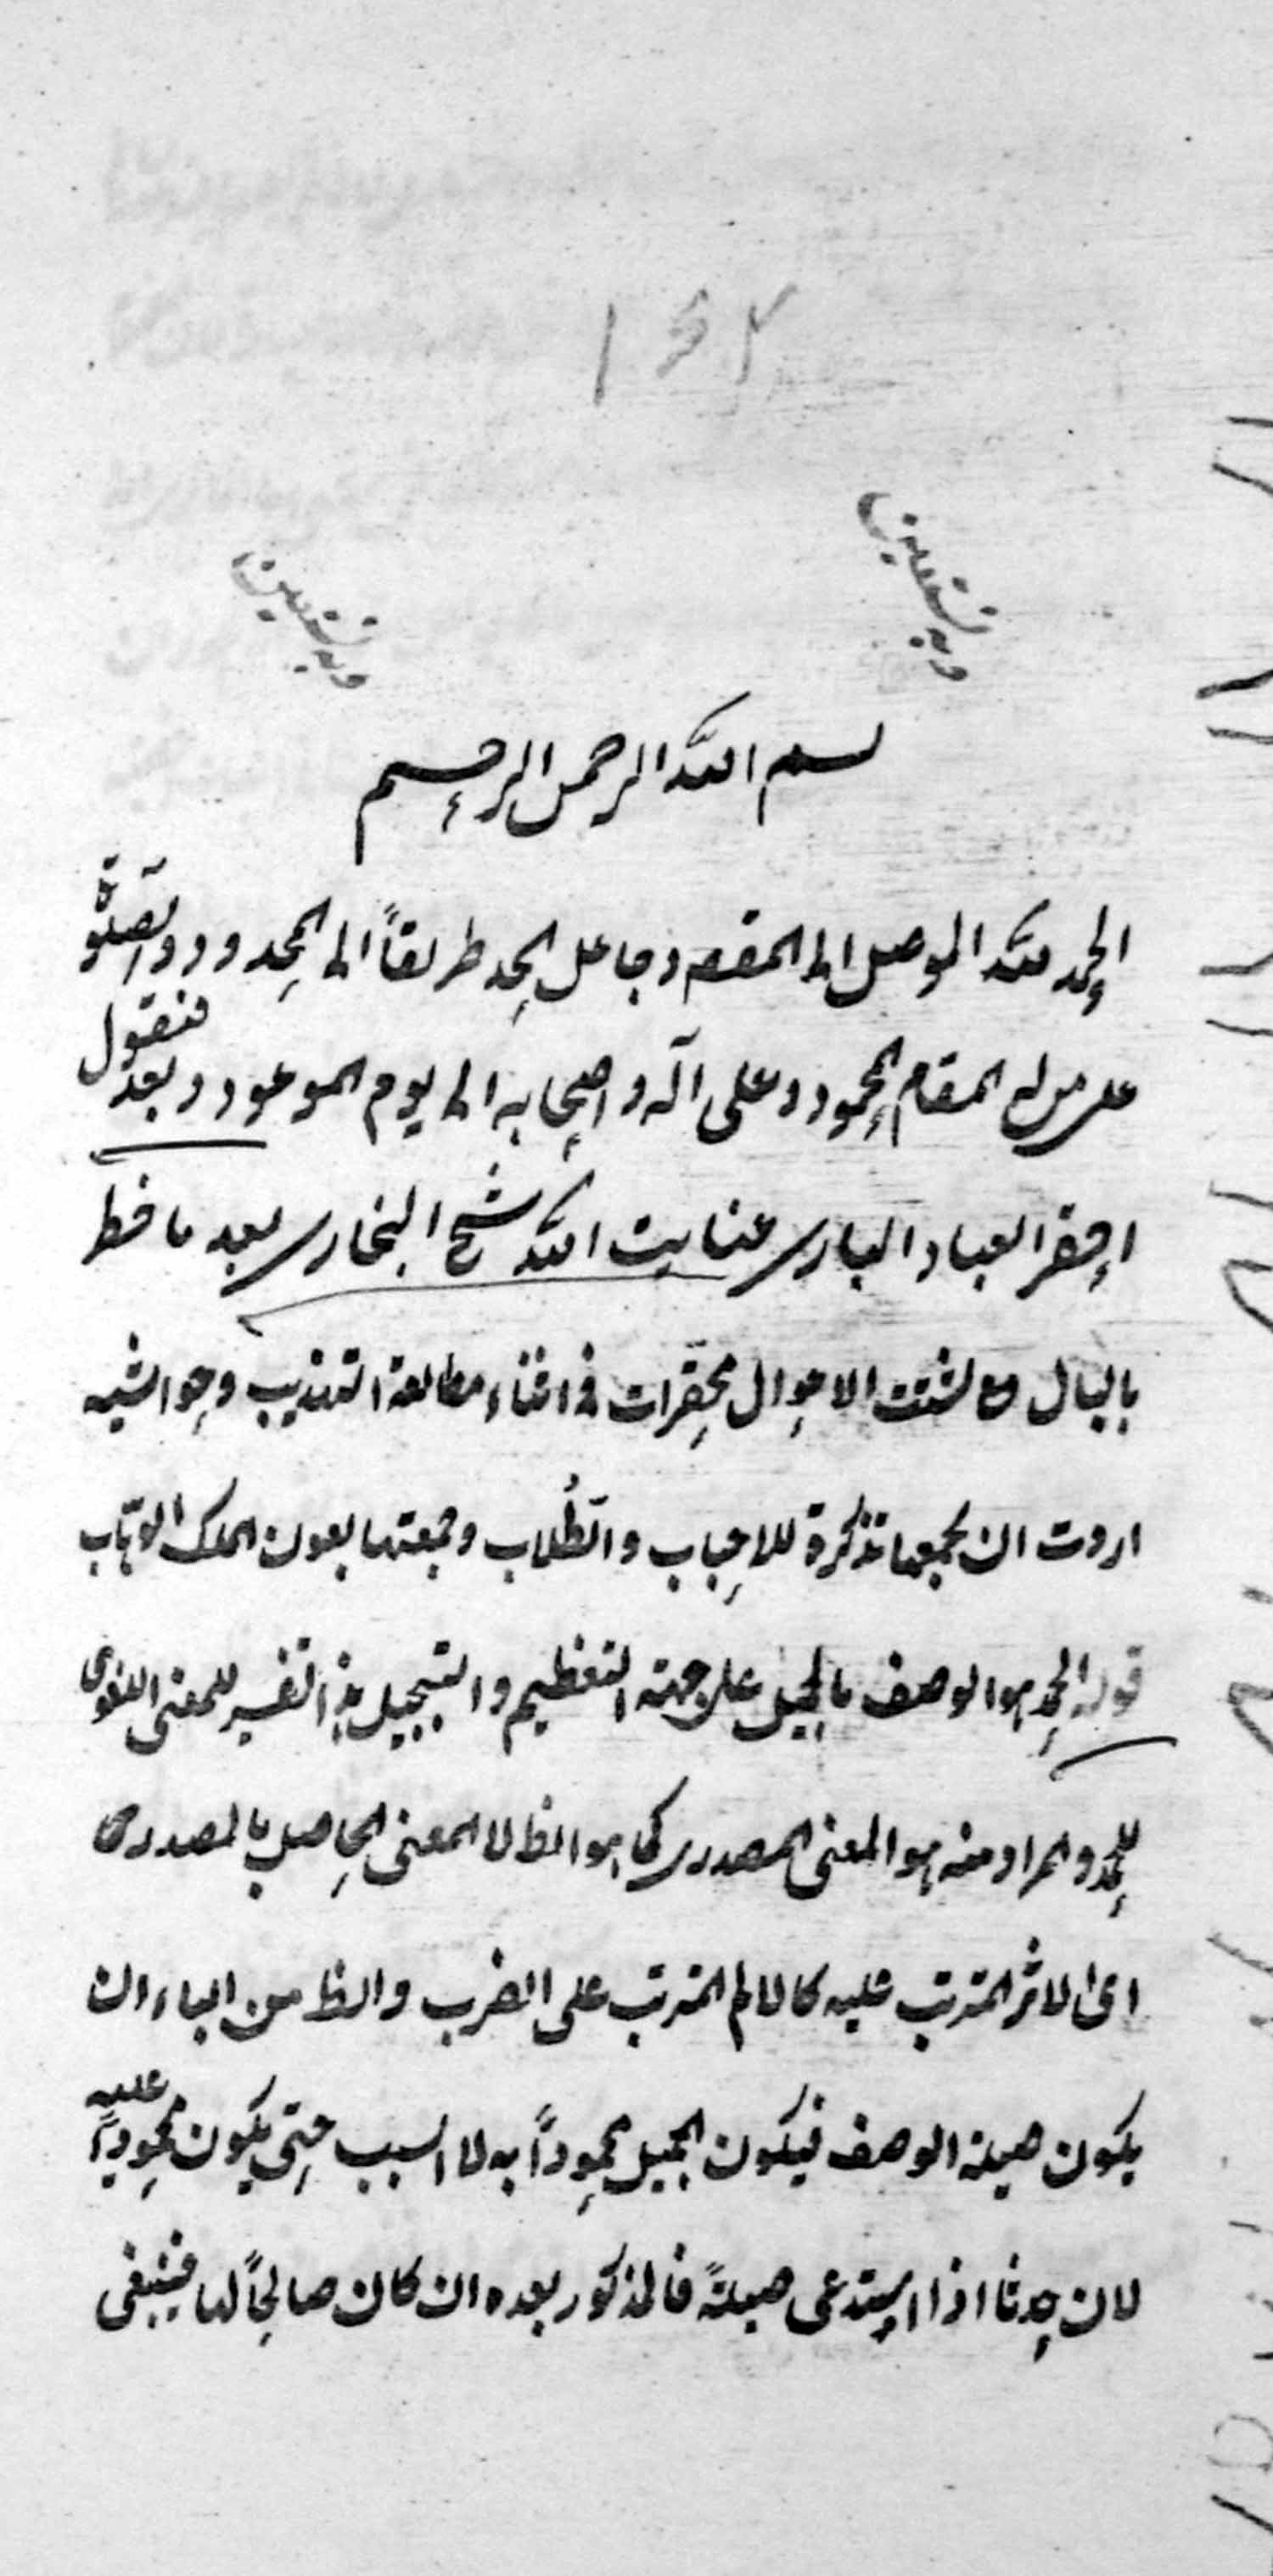 وبه نستعين
وبه نستعين
بسم الله الرحمن الرحيم
الحمد لله الموصل الى المقصود جاعل الحمد طريقاً الى المحمدود والصلوة
على من له المقام المحمود وعلى آله واصحابه الى يوم الموعود وبعد فنقول
احقر العباد البارى عنايت الله شيخ البخارى بعد ما خطر
بالبال مع تشتت الاحوال محقرات فى اثناء مطالعة التهذيب وحواشيه
اردت ان نجمعها تذكرة للاحباب والطُلاب وجمعتها بعون الملك الوهّاب
قوله الحمد هو الوصف بالجميل على جهة التعظيم والتبجيل هذا تفسير للمعنى اللغوى
للحمد والمراد منه هو المعنى المصدرى كما هو الظ لا المعنى الحاصل بالمصدر
اى الاثر المترتب عليه كالالم المترتب على الضرب والظ من الباء ان
يكون صلة الوصف فيكون الجميل محموداً به لا السبب حتى يكون محموداً عليه
لان حدثا اذا استدعى صلةً فالمذكور بعده ان كان صالحاً لها فينبغى